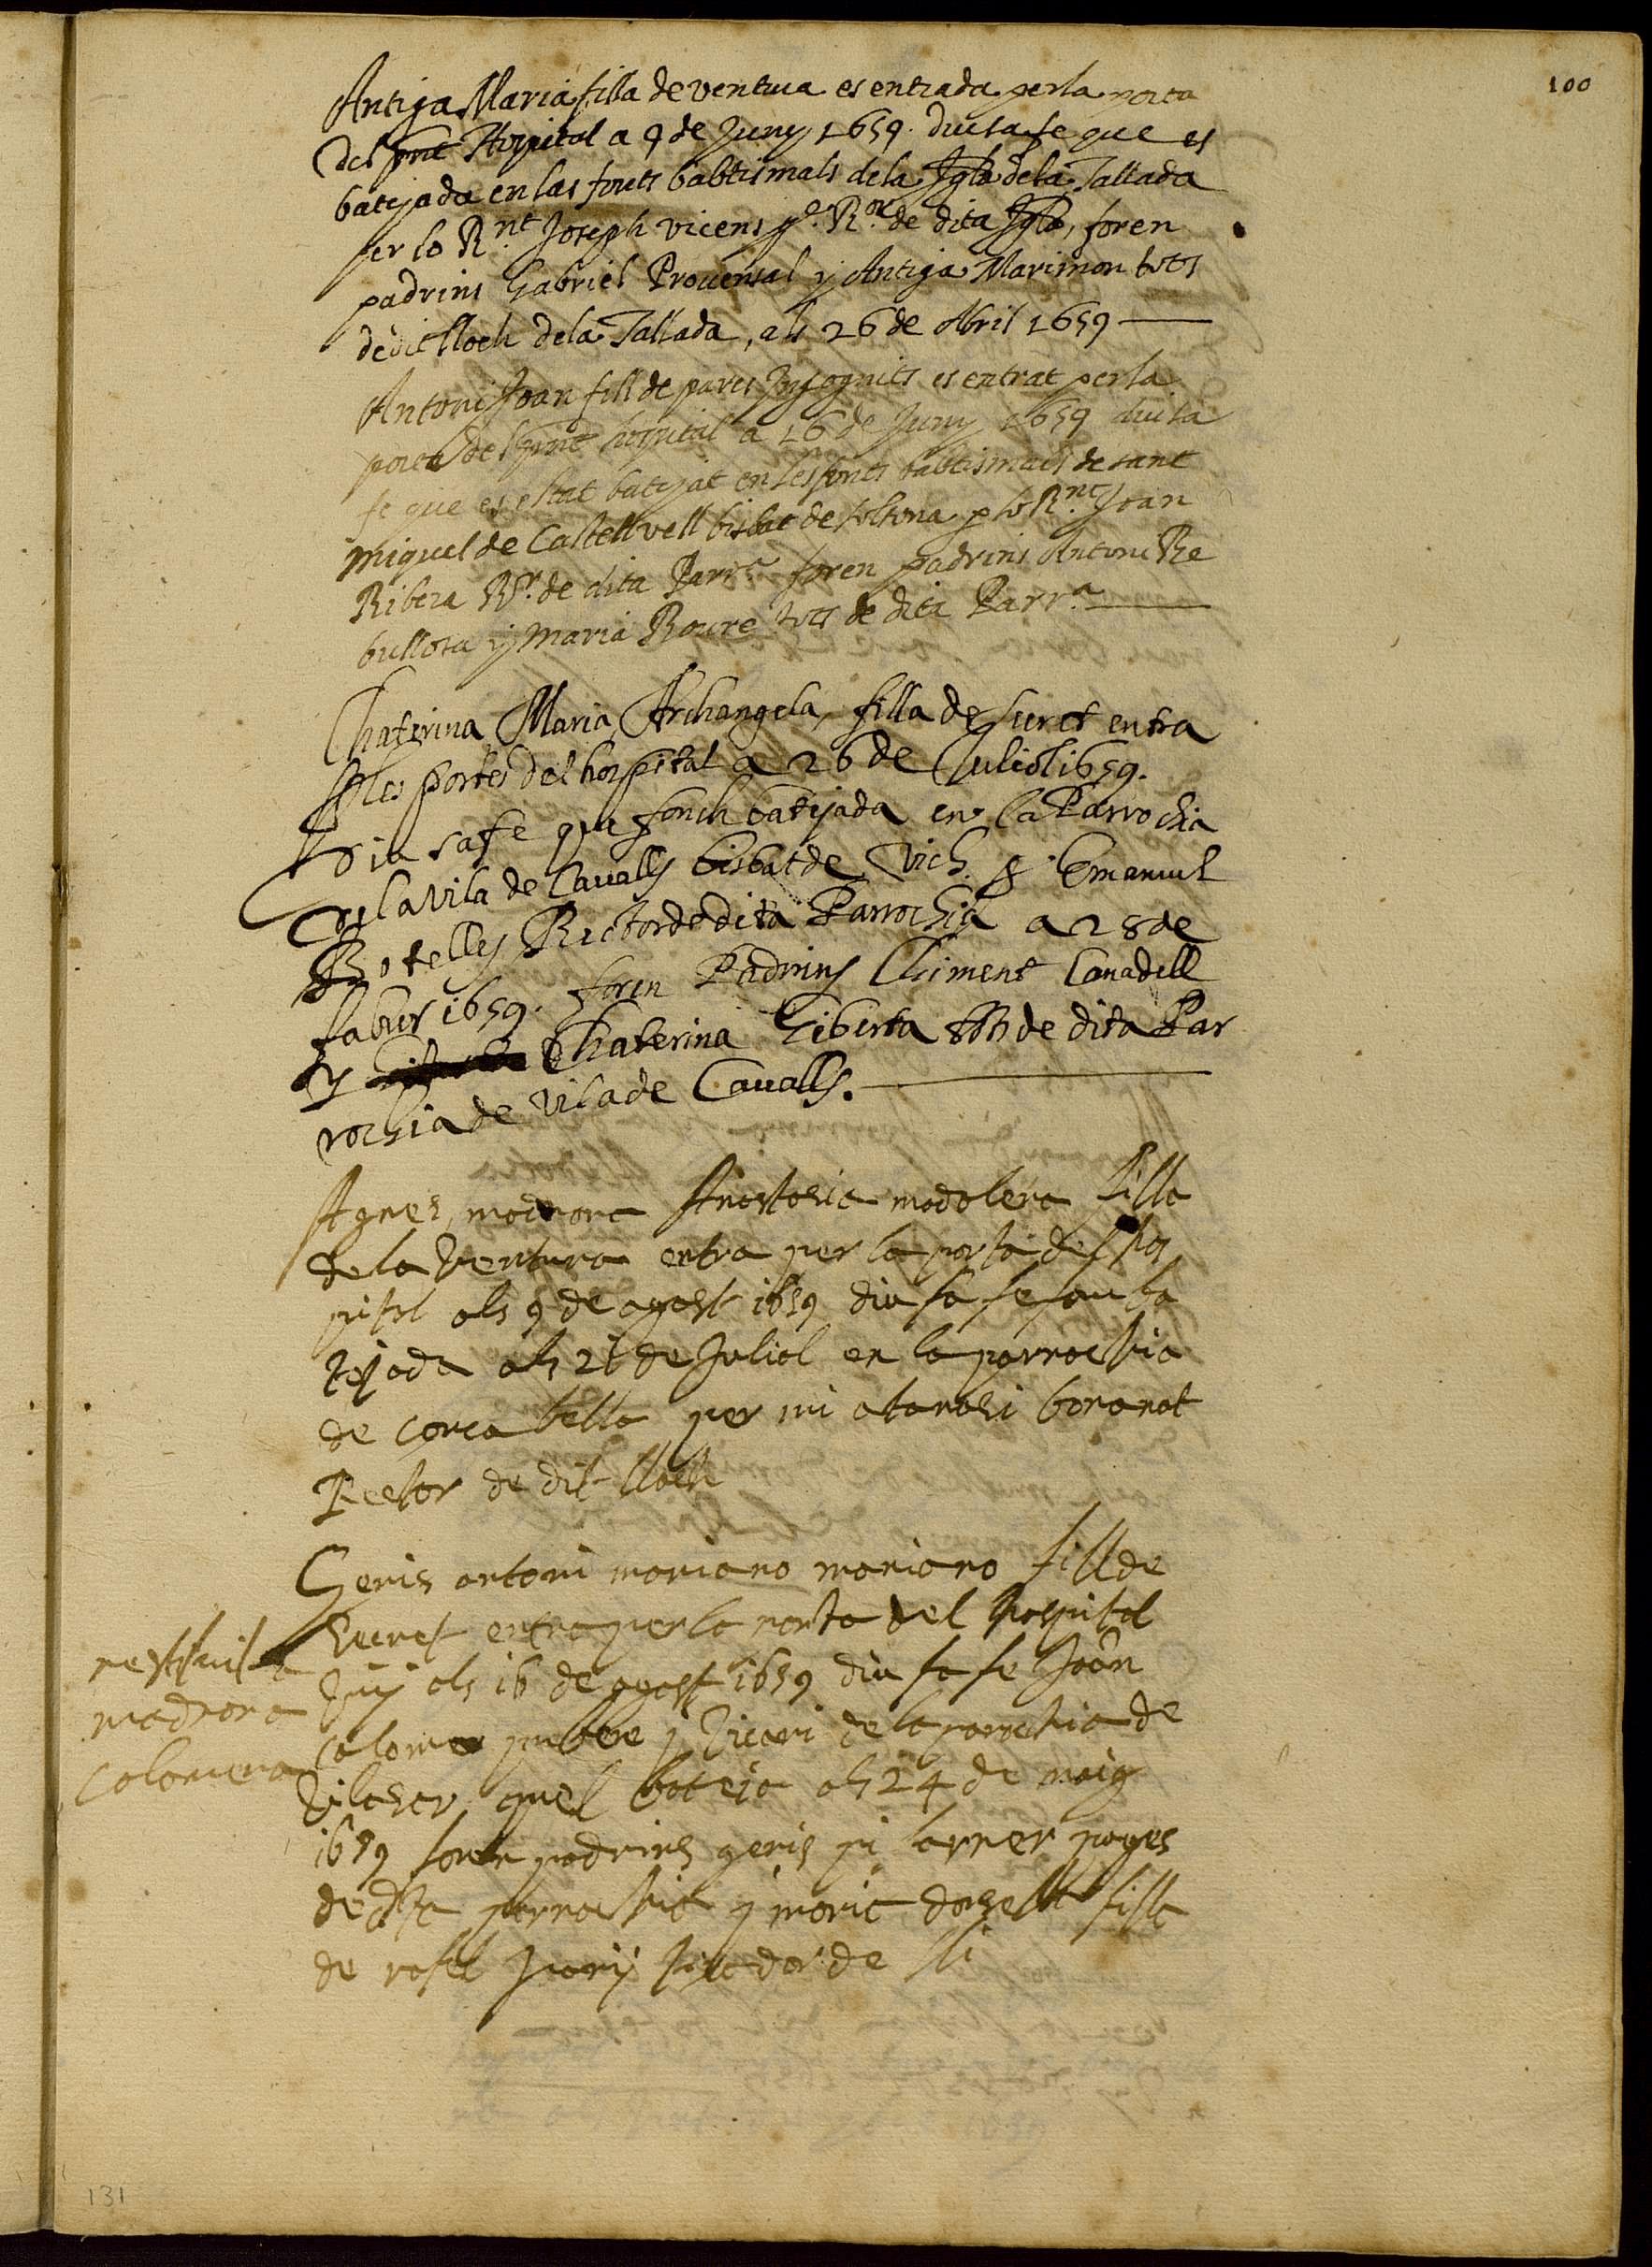 100
Antiga Maria filla de ventura es entrada per la porta
del pnt Hospital a 9 de Juny 1659. diu sa fe que es
batejada en las fonts babtismals dela Igla dela Tallada
per lo R.nt Joseph vicens p.e R.or de dita Igla, foren
padrins Gabriel Prouensal y Antiga Marimon tots
de dit lloch dela Tallada, als 26 de Abril 1659
Antoni Joan fill de pares Incognits es entrat per la
porta del pnt hospital a 16 de Juny 1659 diu sa
fe que es estat batejat en les fonts babtismals de sant
Miquel de Castellvell bisbat de solsona p lo R.nt Joan
Ribera R.r de dita Parr.a foren padrins Antoni Re
bullosa y Maria Roure tots de dita Parr.a
Chaterina Maria Archangela, filla de secret entra
p les portes del hospital a 26 de Juliol 1659.
Diu sa fe que fonch batejada en la Parrochia
de la Vila de Cavalls bisbat de Vich p Emanuel
Botelly Rictor de dita Parrochia a 28 de
fabrer 1659. foren Padrins Climent Canadell
y Chaterina Giberta tots de dita Par
rochia de Vila de Cavalls.
Agnes madrona Anastasia madolera filla
de la Ventura entra per la porta del hos
pital als 9 de agost 1659 diu sa fe fou ba
tejada als 21 de Juliol en la parrochia
de corca bella per mi atanasi bonanat
Rector de dit lloch
Genis antoni mariano mariano fill de
secret entra per la porta del hospital
vuy als 16 de agost 1659 diu sa fe Joan
calomer prebere y Vicari de la parrochia de
Vilasar quel bateja als 24 de maig
1659 foren padrins genis pi farrer pages
de dita parrochia y maria donsella filla
de rafel
restituit a
madrona
Colomera
131